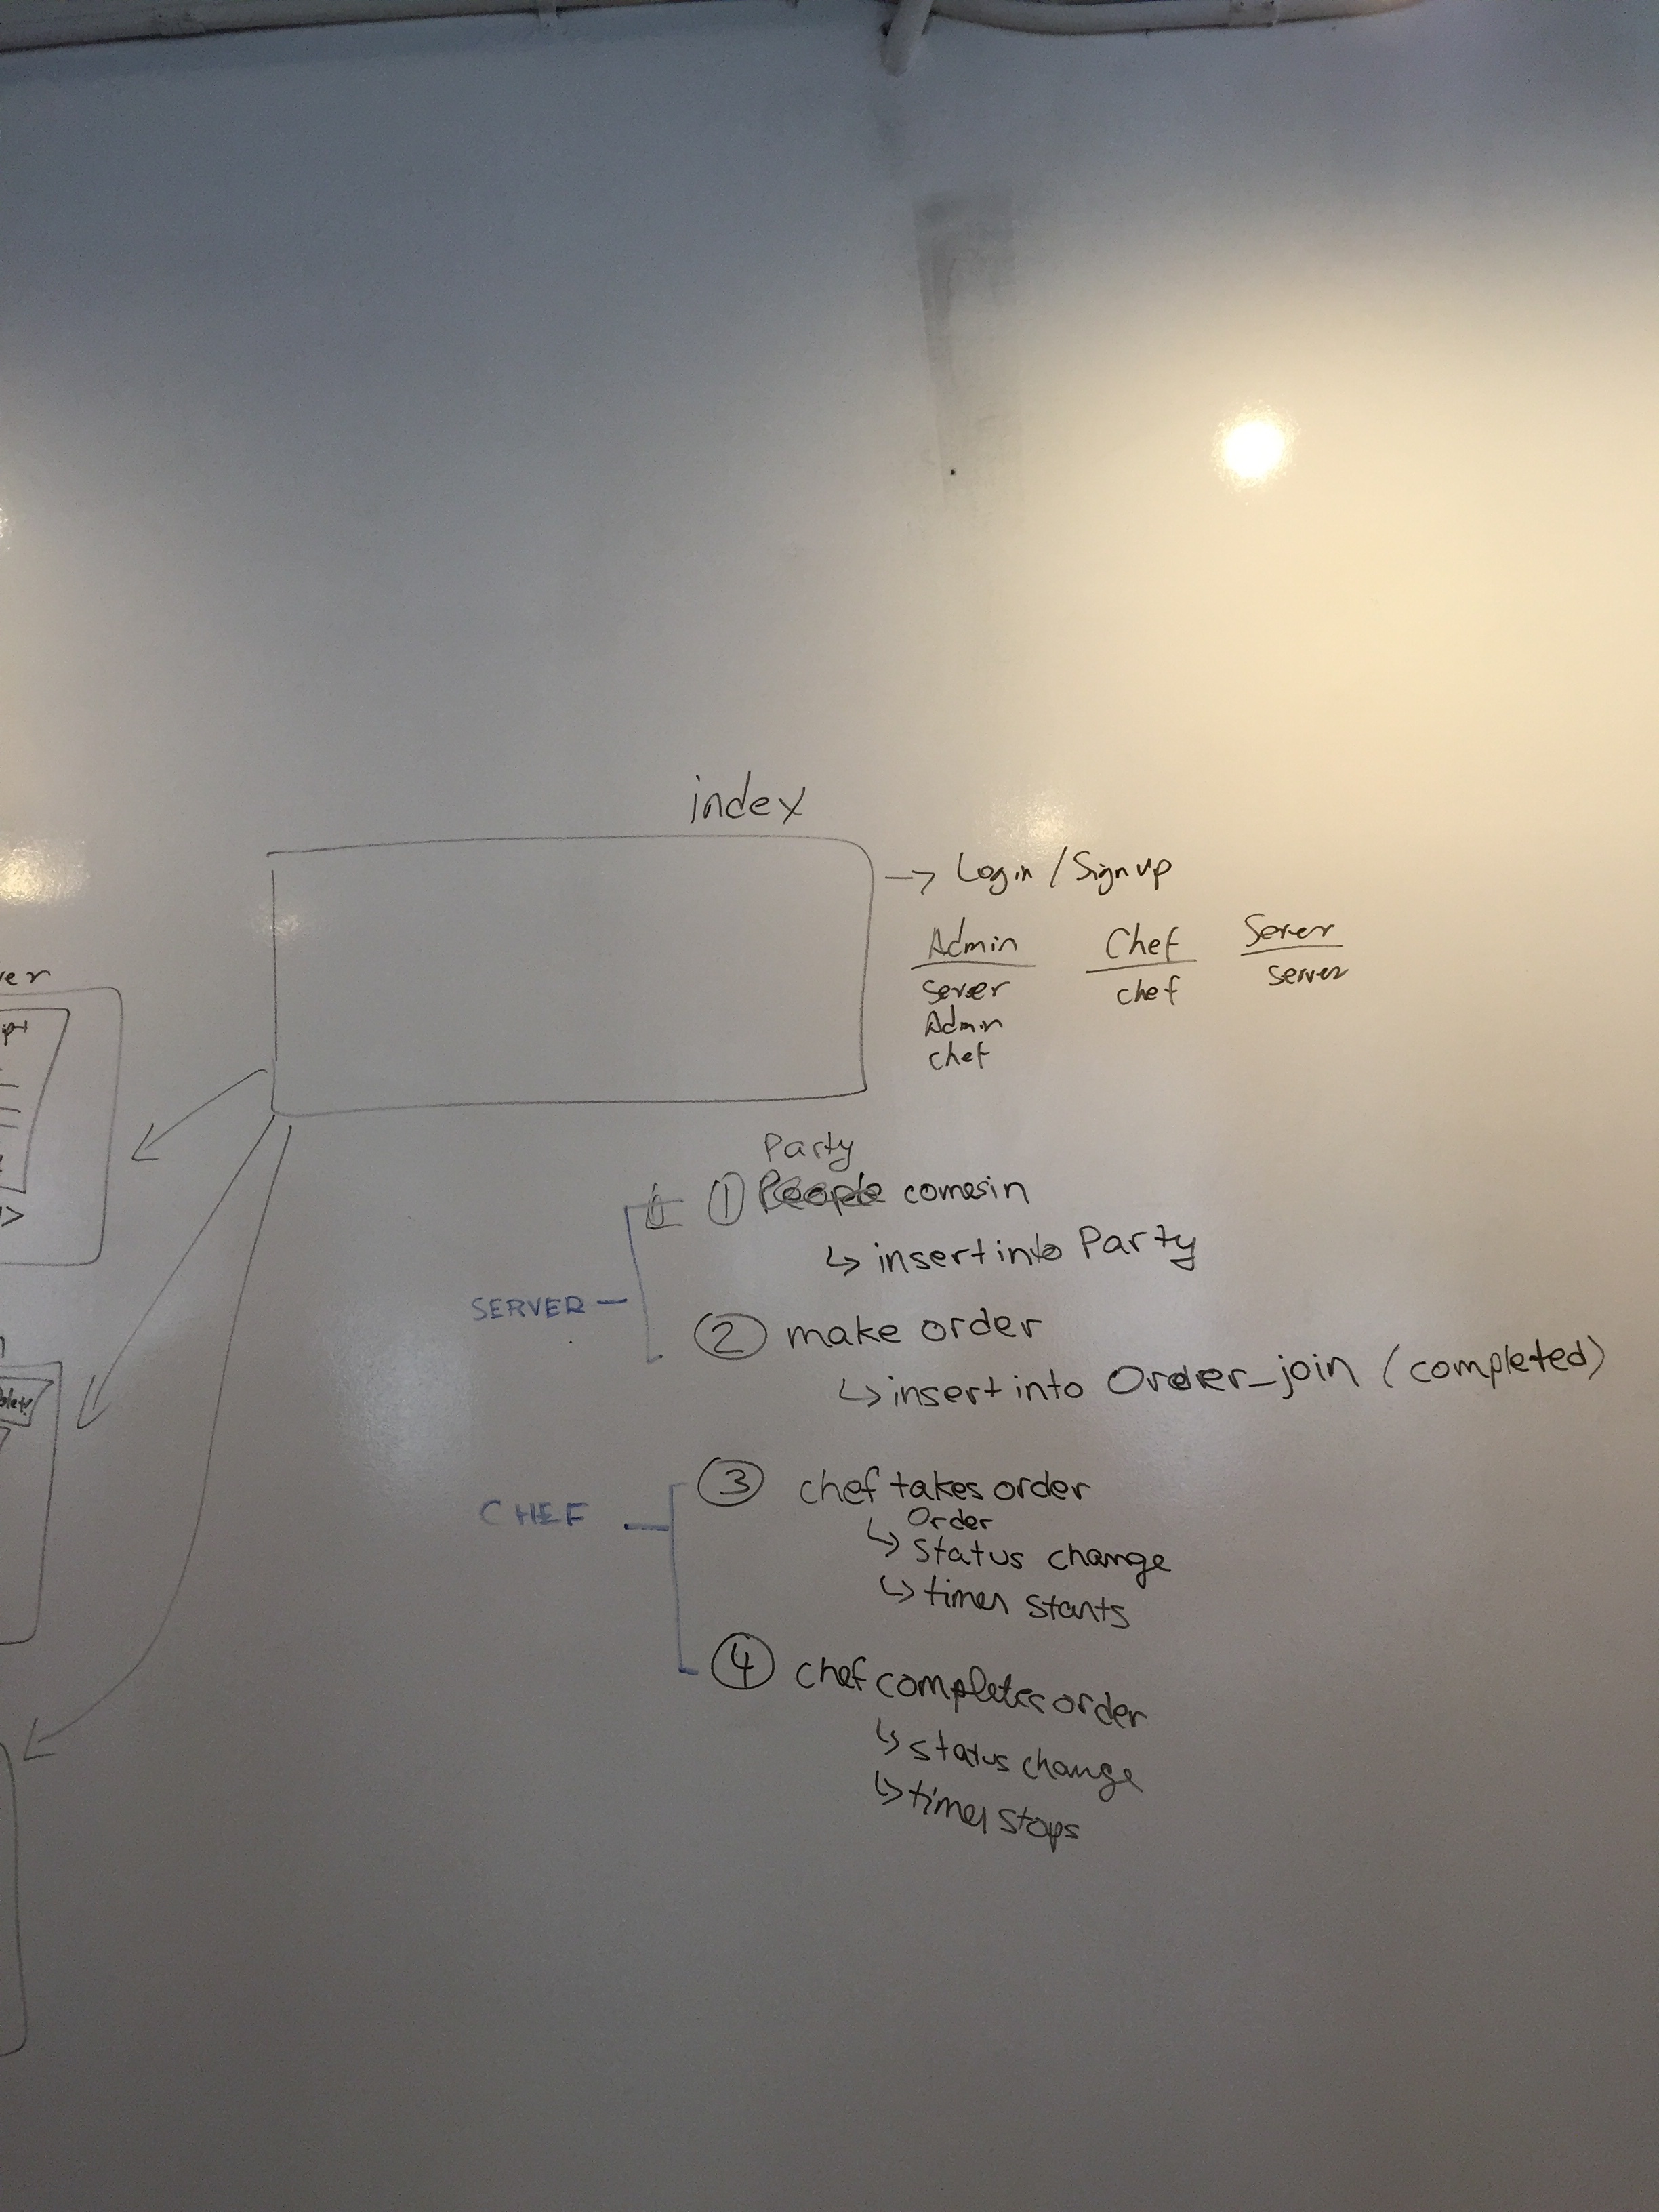 index
→ Login / Sign up
Admin Chef Server
server chef server
Admin
chef
Party
① People comes in
↳ insert into Party
SERVER
② make order
↳ insert into Order_join (completed)
③ chef takes order
CHEF
Order
↳ status change
↳ timer starts
④ chef completes order
↳ status change
↳ timer stops
ver